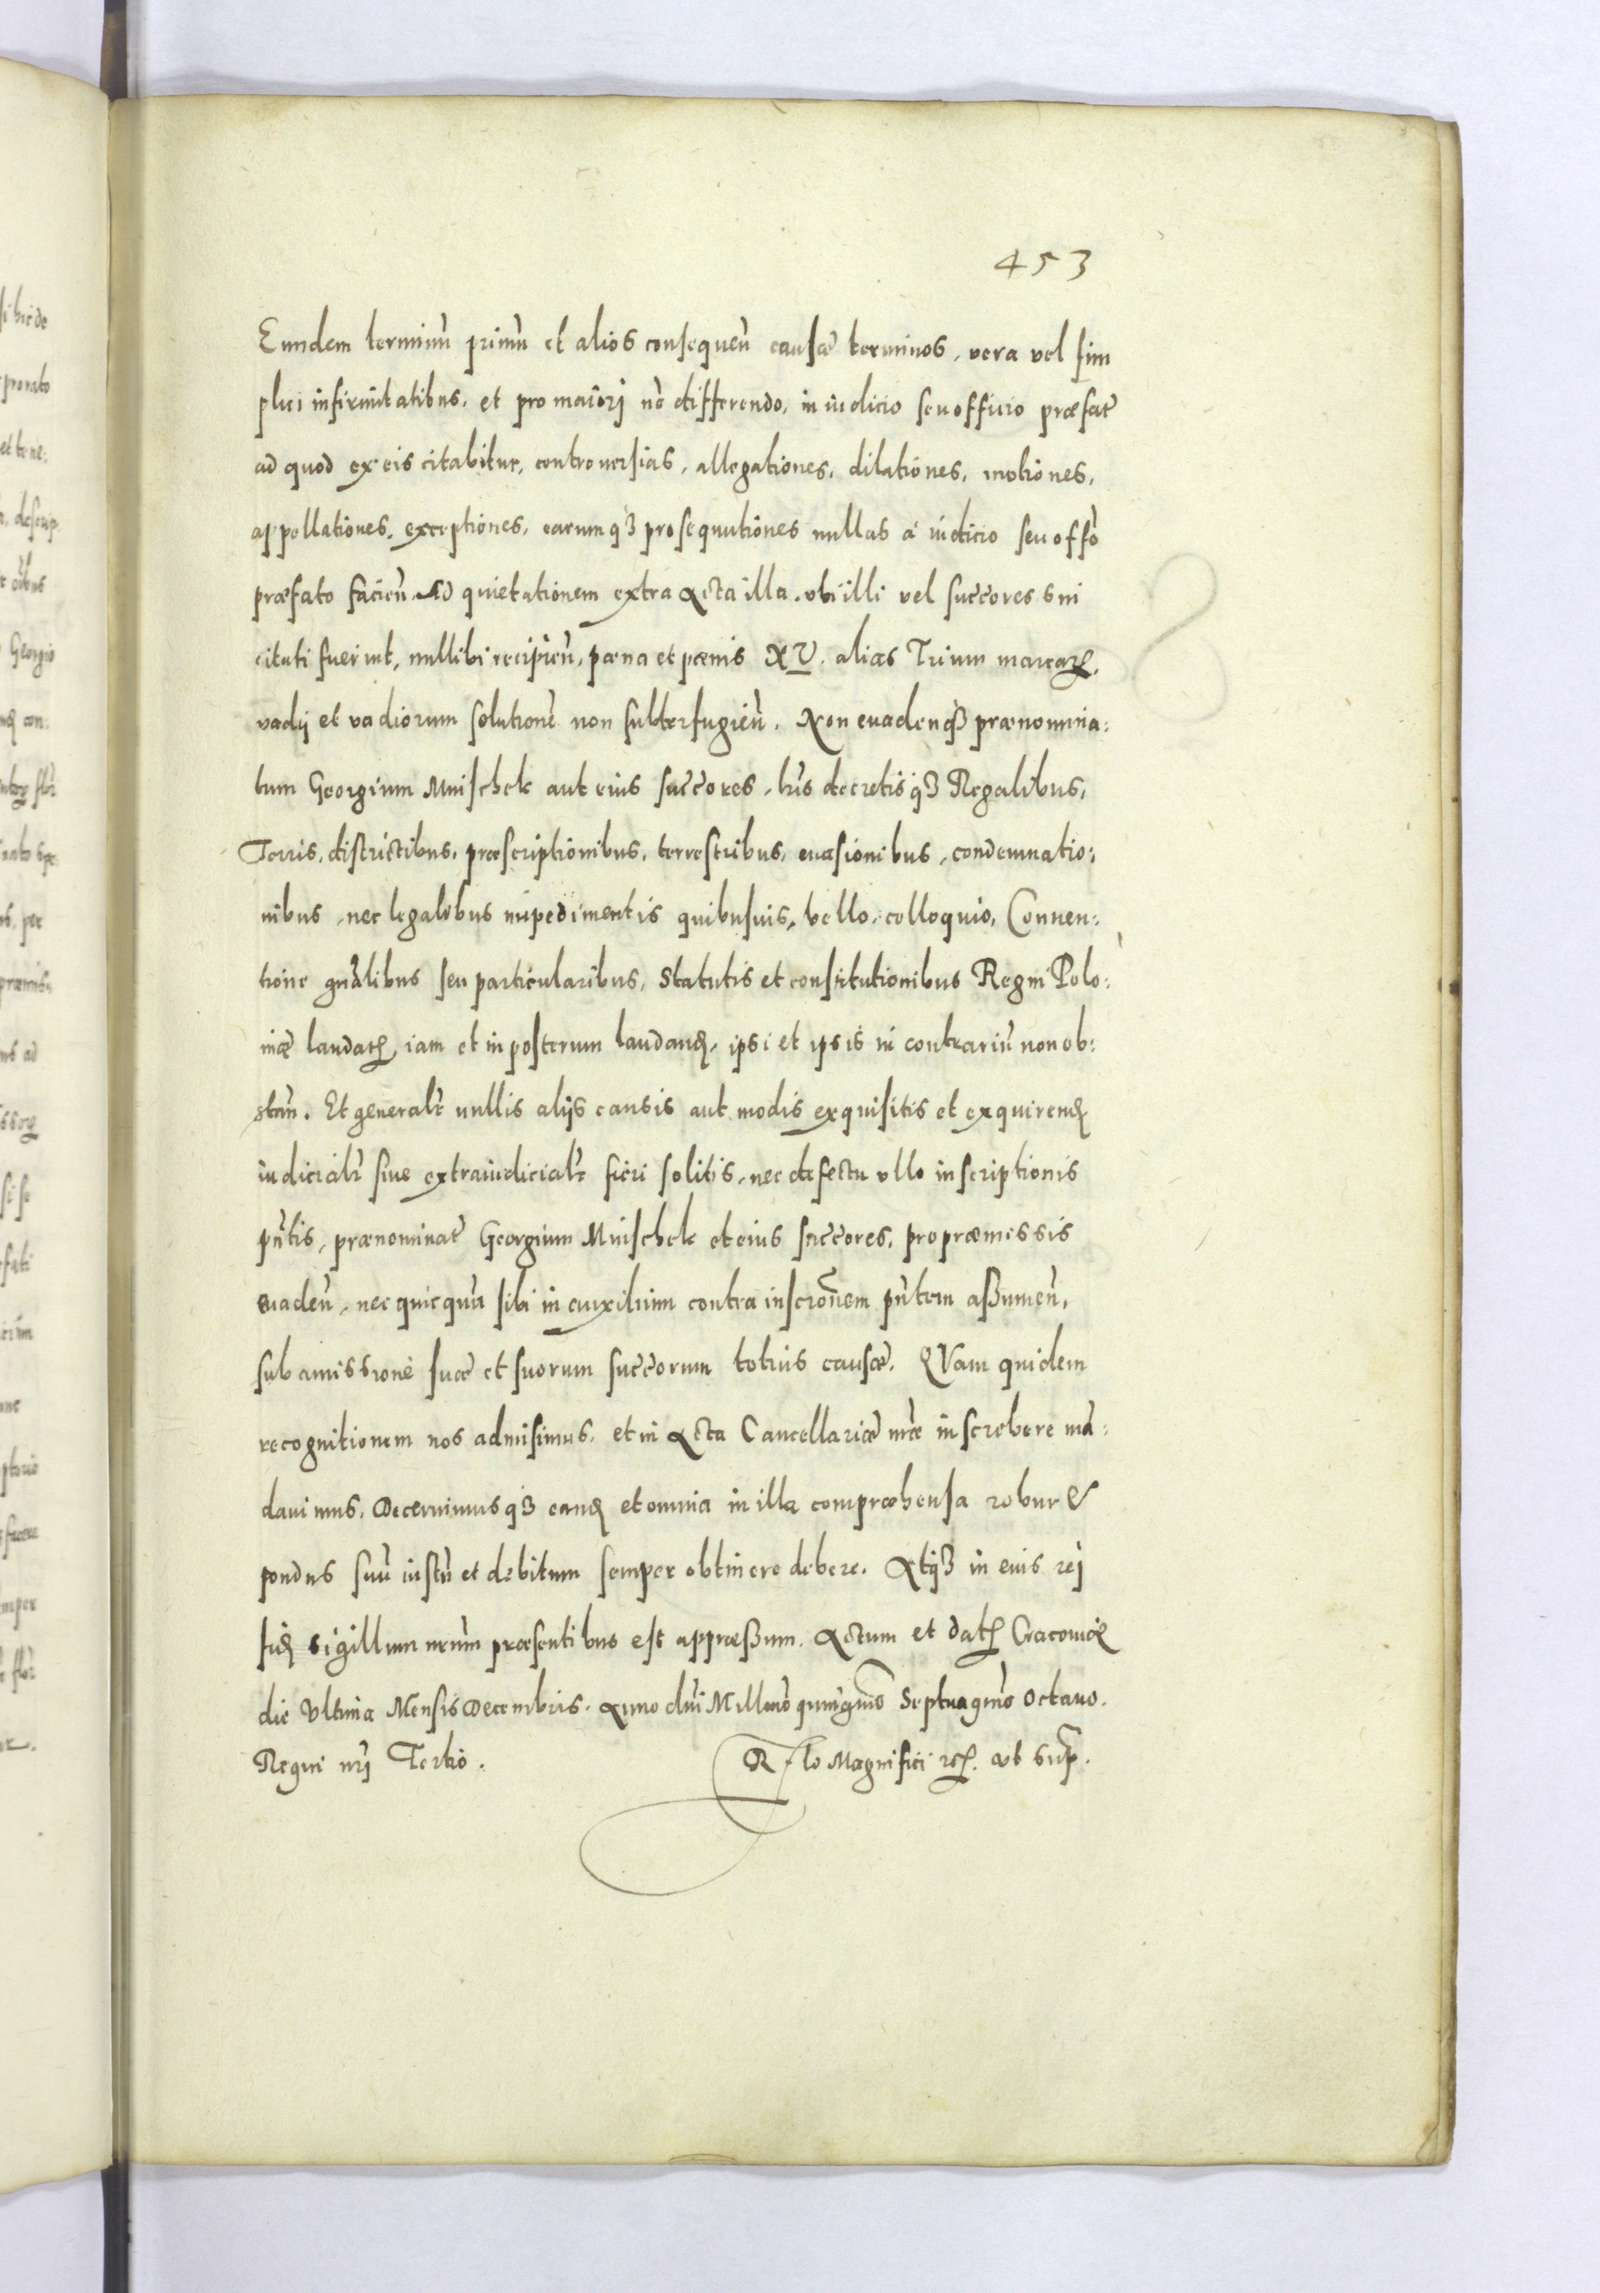 453
Eundem terminũ primũ et alios consequeñ causæ terminos, vera vel sim
plici infirmitatibus, et pro maiori nõ differendo, in iudicio seu officio præfat̃
ad quod ex eis citabitur, controuersias, allegationes, dilationes, motiones,
appellationes, exceptiones, earumqȝ prosequutiones nullas a iudicio seu offõ
præfato facieñ. Ad quietationem extra Acta illa, vbi illi vel succ̃ores sui
citati fuerint, nullibi recipieñ, pæna et pænis XV. alias Trium marcaꝝ,
vadij et vadiorum solutionẽ non subterfugieñ. Non euadenqȝ prænomina:
tum Georgium Mnischek aut eius succ̃ores, hr̃is decretisqȝ Regalibus,
Terris, districtibus, præscriptionibus, terrestribus, euasionibus, condemnatio:
nibus, nec legalibus impedimentis quibusuis, bello, colloquio, Conuen:
tione gñalibus seu particularibus, Statutis et constitutionibus Regni Polo:
niæ laudatꝭ iam et in posterum laudandꝭ, ipsi et ipsis in contrariũ non ob:
stañ. Et generalr̃ nullis alijs causis aut modis exquisitis et exquirendꝭ
iudicialr̃ siue extraiudicialr̃ fieri solitis, nec defectu vllo inscriptionis
pñtis, prænominat̃ Georgium Mnischek et eius succ̃ores, pro præmissis
euadeñ, nec quicquã sibi in auxilium contra inscrõnem pñtem aßumeñ,
sub amissione suæ et suorum succ̃orum totius causæ. QVam quidem
recognitionem nos admisimus, et in Acta Cancellariæ nr̃æ inscribere mã:
dauimus, Decernimusqȝ eandꝭ et omnia in illa compræhensa robur &
pondus suũ iustũ et debitum semper obtinere debere. Atqȝ in euis rej
fidꝭ Sigillum nr̃um præsentibus est appræßum. Actum et datꝭ Cracouiæ
die Vltima Mensis Decembris. Anno dñi Millmõ quingmõ Septuagmõ Octauo.
Regni nr̃j Tertio. R̃lo Magnifici etꝭ. vt sup̃.